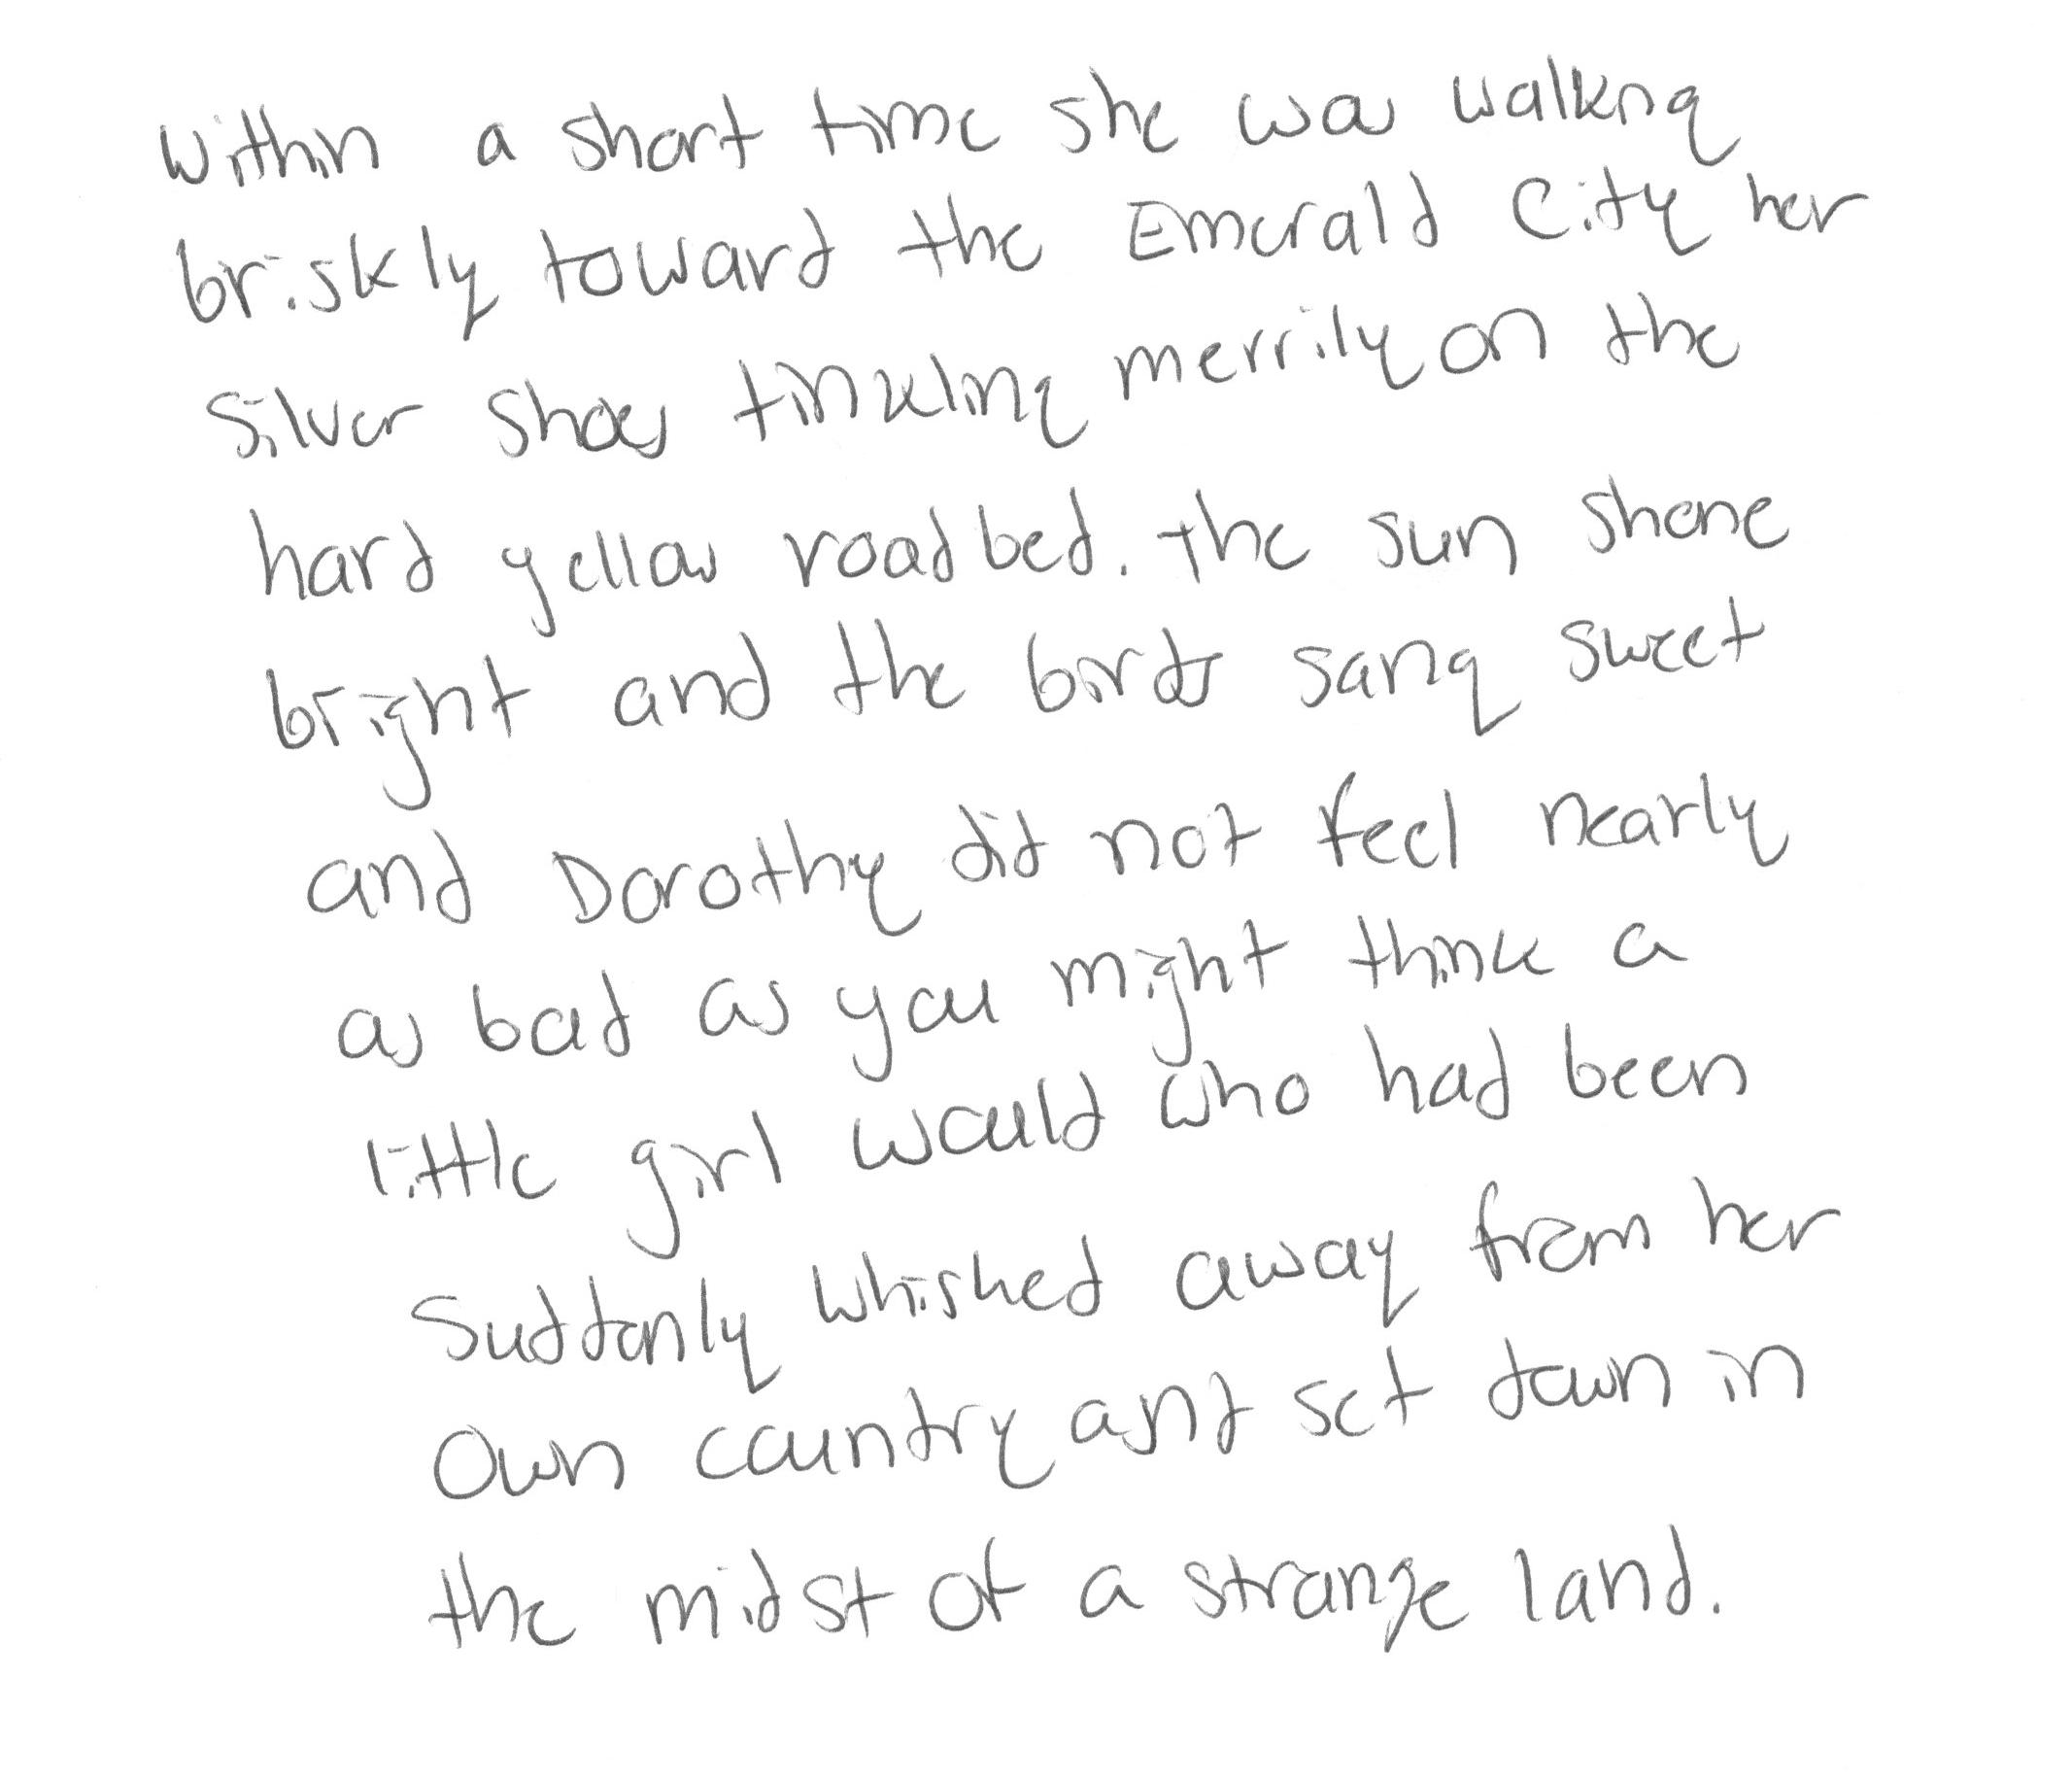 Within a short time she was walking
briskly toward the Emerald City her
Silver shoes tinkling merrily on the
hard yellow roadbed. the sun shone
bright and the birds sang sweet
and Dorothy did not feel nearly
as bad as you might think a
little girl would who had been
suddenly whished away from her
own country and set down in
the midst of a strange land.